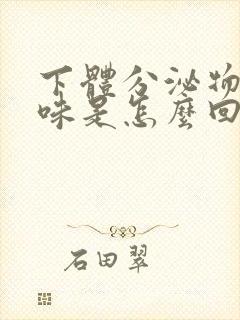 下體分泌物
味是怎麼回
石田翠